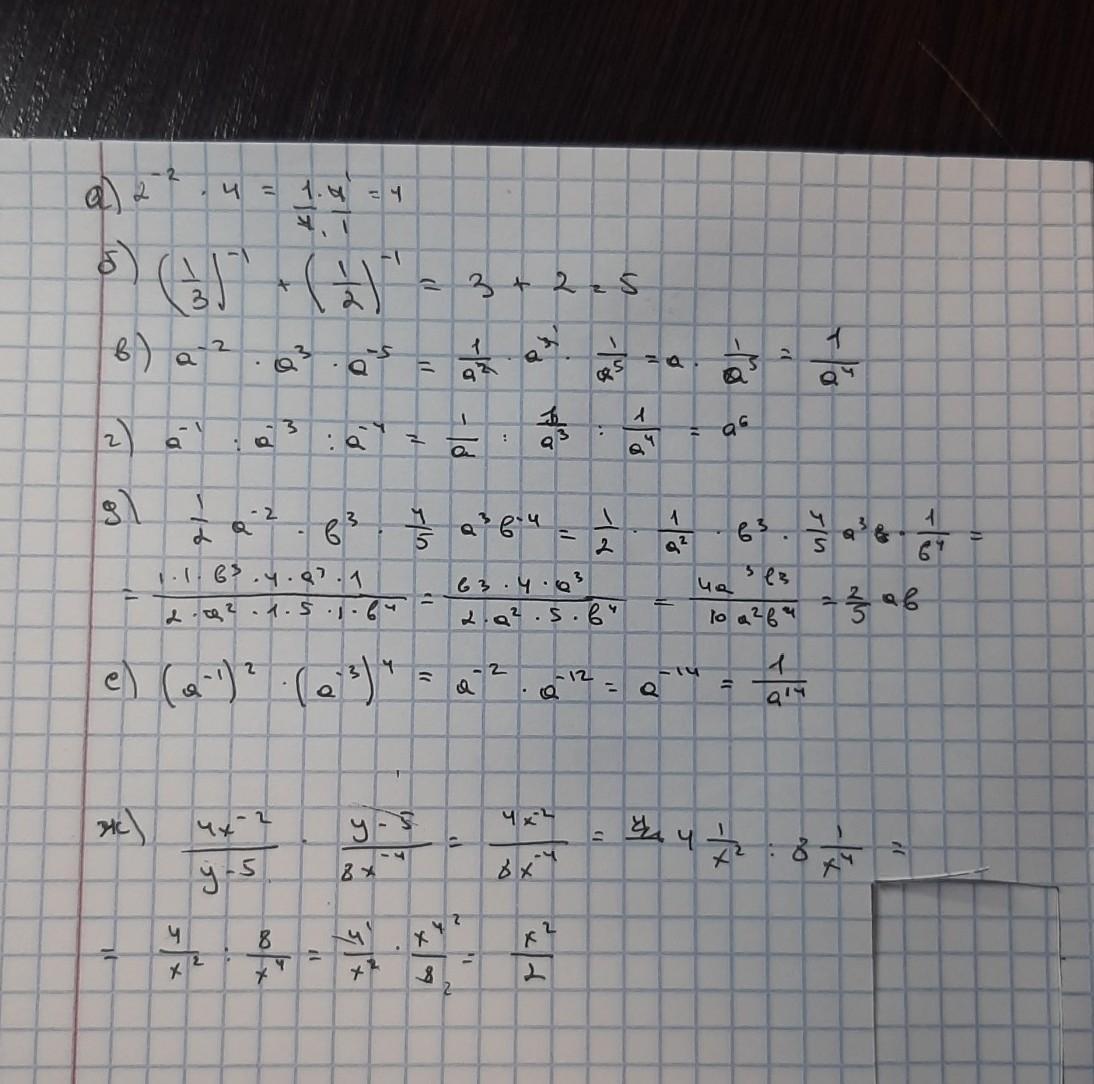 а) 2⁻² · 4 = 1/4 · 4/1 = 4
б) (1/3)⁻¹ + (1/2)⁻¹ = 3 + 2 = 5
в) a⁻² · a³ · a⁻⁵ = 1/a² · a³ · 1/a⁵ = a · 1/a⁵ = 1/a⁴
г) a⁻¹ : a⁻³ : a⁻⁴ = 1/a : 1/a³ : 1/a⁴ = a⁶
д) 1/2 a⁻² · b³ · 4/5 a³ b⁻⁴ = 1/2 · 1/a² · b³ · 4/5 a³ · 1/b⁴ =
= (1 · 1 · b³ · 4 · a³ · 1)/(2 · a² · 1 · 5 · 1 · b⁴) = (b³ · 4 · a³)/(2 · a² · 5 · b⁴) = (4a³b³)/(10a²b⁴) = 2/5 ab
е) (a⁻¹)² · (a⁻³)⁴ = a⁻² · a⁻¹² = a⁻¹⁴ = 1/a¹⁴
ж) (4x⁻²)/(y-5) · (y-5)/(8x⁻⁴) = (4x⁻²)/(8x⁻⁴) = 4 1/x² : 8 1/x⁴ =
= 4/x² : 8/x⁴ = 4/x² · x⁴/8 = x²/2